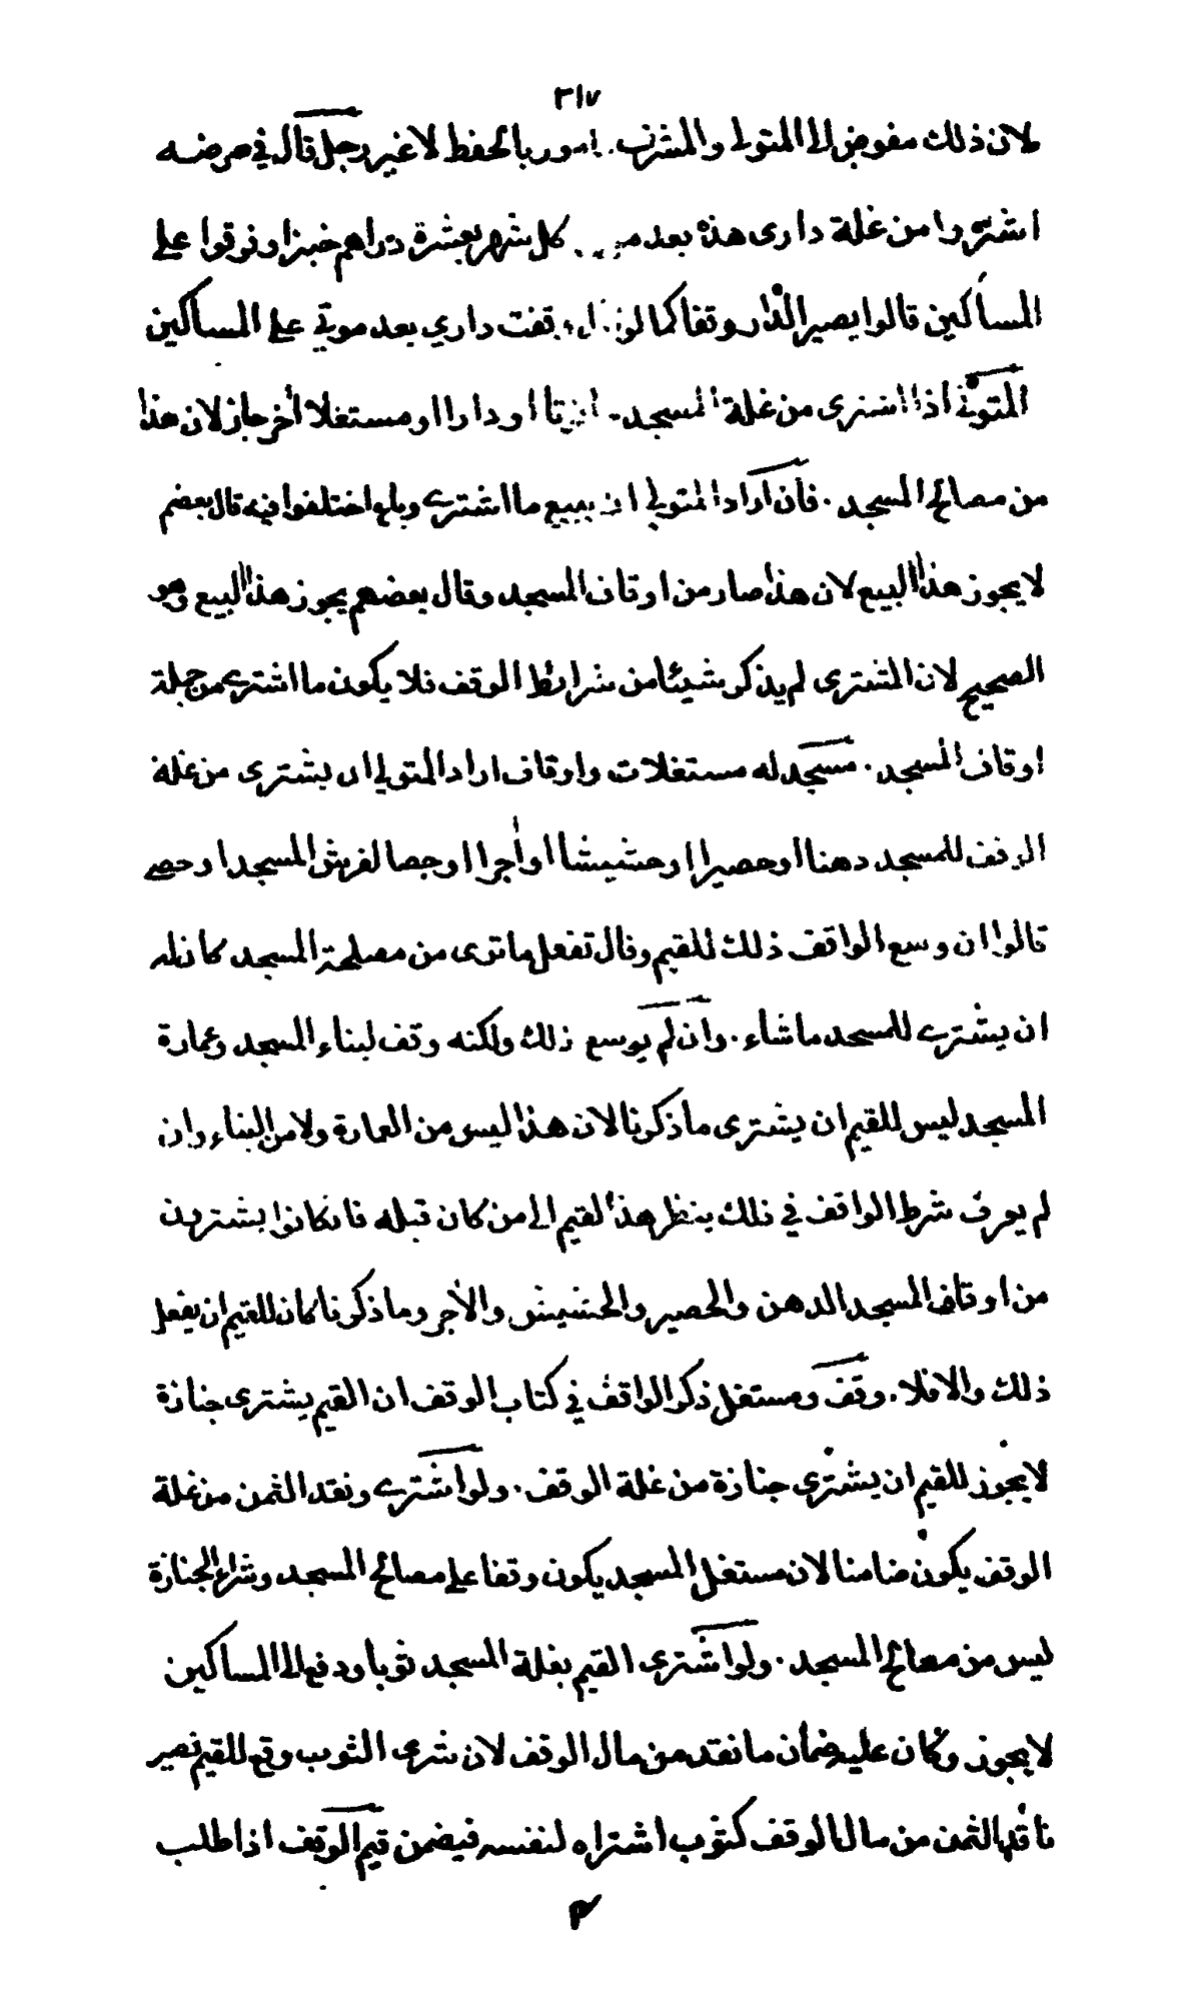 ٣١٧
لان ذلك مفوض الى المتولى والمشرف مامور بالحفظ لا غير رجل قال في مرضه
اشتروا من غلة دارى هذه بعد كل شهر بعشرة دراهم خبزا وفرقوا على
المساكين قالوا يصير الدار وقفا كما لو قال وقفت داري بعد موتي على المساكين
المتولي اذا اشترى من غلة المسجد حانوتا او دارا او مستغلا اخر جاز لان هذا
من مصالح المسجد . فان اراد المتولي ان يبيع ما اشترى وباع اختلفوا فيه قال بعضهم
لا يجوز هذا البيع لان هذا صار من اوقاف المسجد وقال بعضهم يجوز هذا البيع وهو
الصحيح لان المشترى لم يذكر شيئا من شرائط الوقف فلا يكون ما اشترى من جملة
اوقاف المسجد . مسجد له مستغلات واوقاف اراد المتولي ان يشترى من غلة
الوقف للمسجد دهنا او حصيرا او حشيشا او اجرا او جصا لفرش المسجد او حصى
قالوا ان وسع الواقف ذلك للقيم وقال تفعل ما ترى من مصلحة المسجد كان له
ان يشترى للمسجد ما شاء . وان لم يوسع ذلك ولكنه وقف لبناء المسجد وعمارة
المسجد ليس للقيم ان يشترى ما ذكرنا لان هذا ليس من العمارة ولا من البناء وان
لم يعرف شرط الواقف في ذلك ينظر هذا القيم الى من كان قبله فان كانوا يشترون
من اوقاف المسجد الدهن والحصير والحشيش والاجر وما ذكرنا كان للقيم ان يفعل
ذلك والا فلا . وقف ومستغل ذكر الواقف في كتاب الوقف ان القيم يشترى جنازة
لا يجوز للقيم ان يشترى جنازة من غلة الوقف . ولو اشترى ونقد الثمن من غلة
الوقف يكون ضامنا لان مستغل المسجد يكون وقفا على مصالح المسجد وشراء الجنازة
ليس من مصالح المسجد . ولو اشترى القيم بغلة المسجد ثوبا ودفع الى المساكين
لا يجوز وكان عليه ضمان ما نقد من مال الوقف لان شرى الثوب وقع للقيم فصير
ناقد الثمن من مال الوقف كثوب اشتراه لنفسه فيضمن قيم الوقف اذا طلب